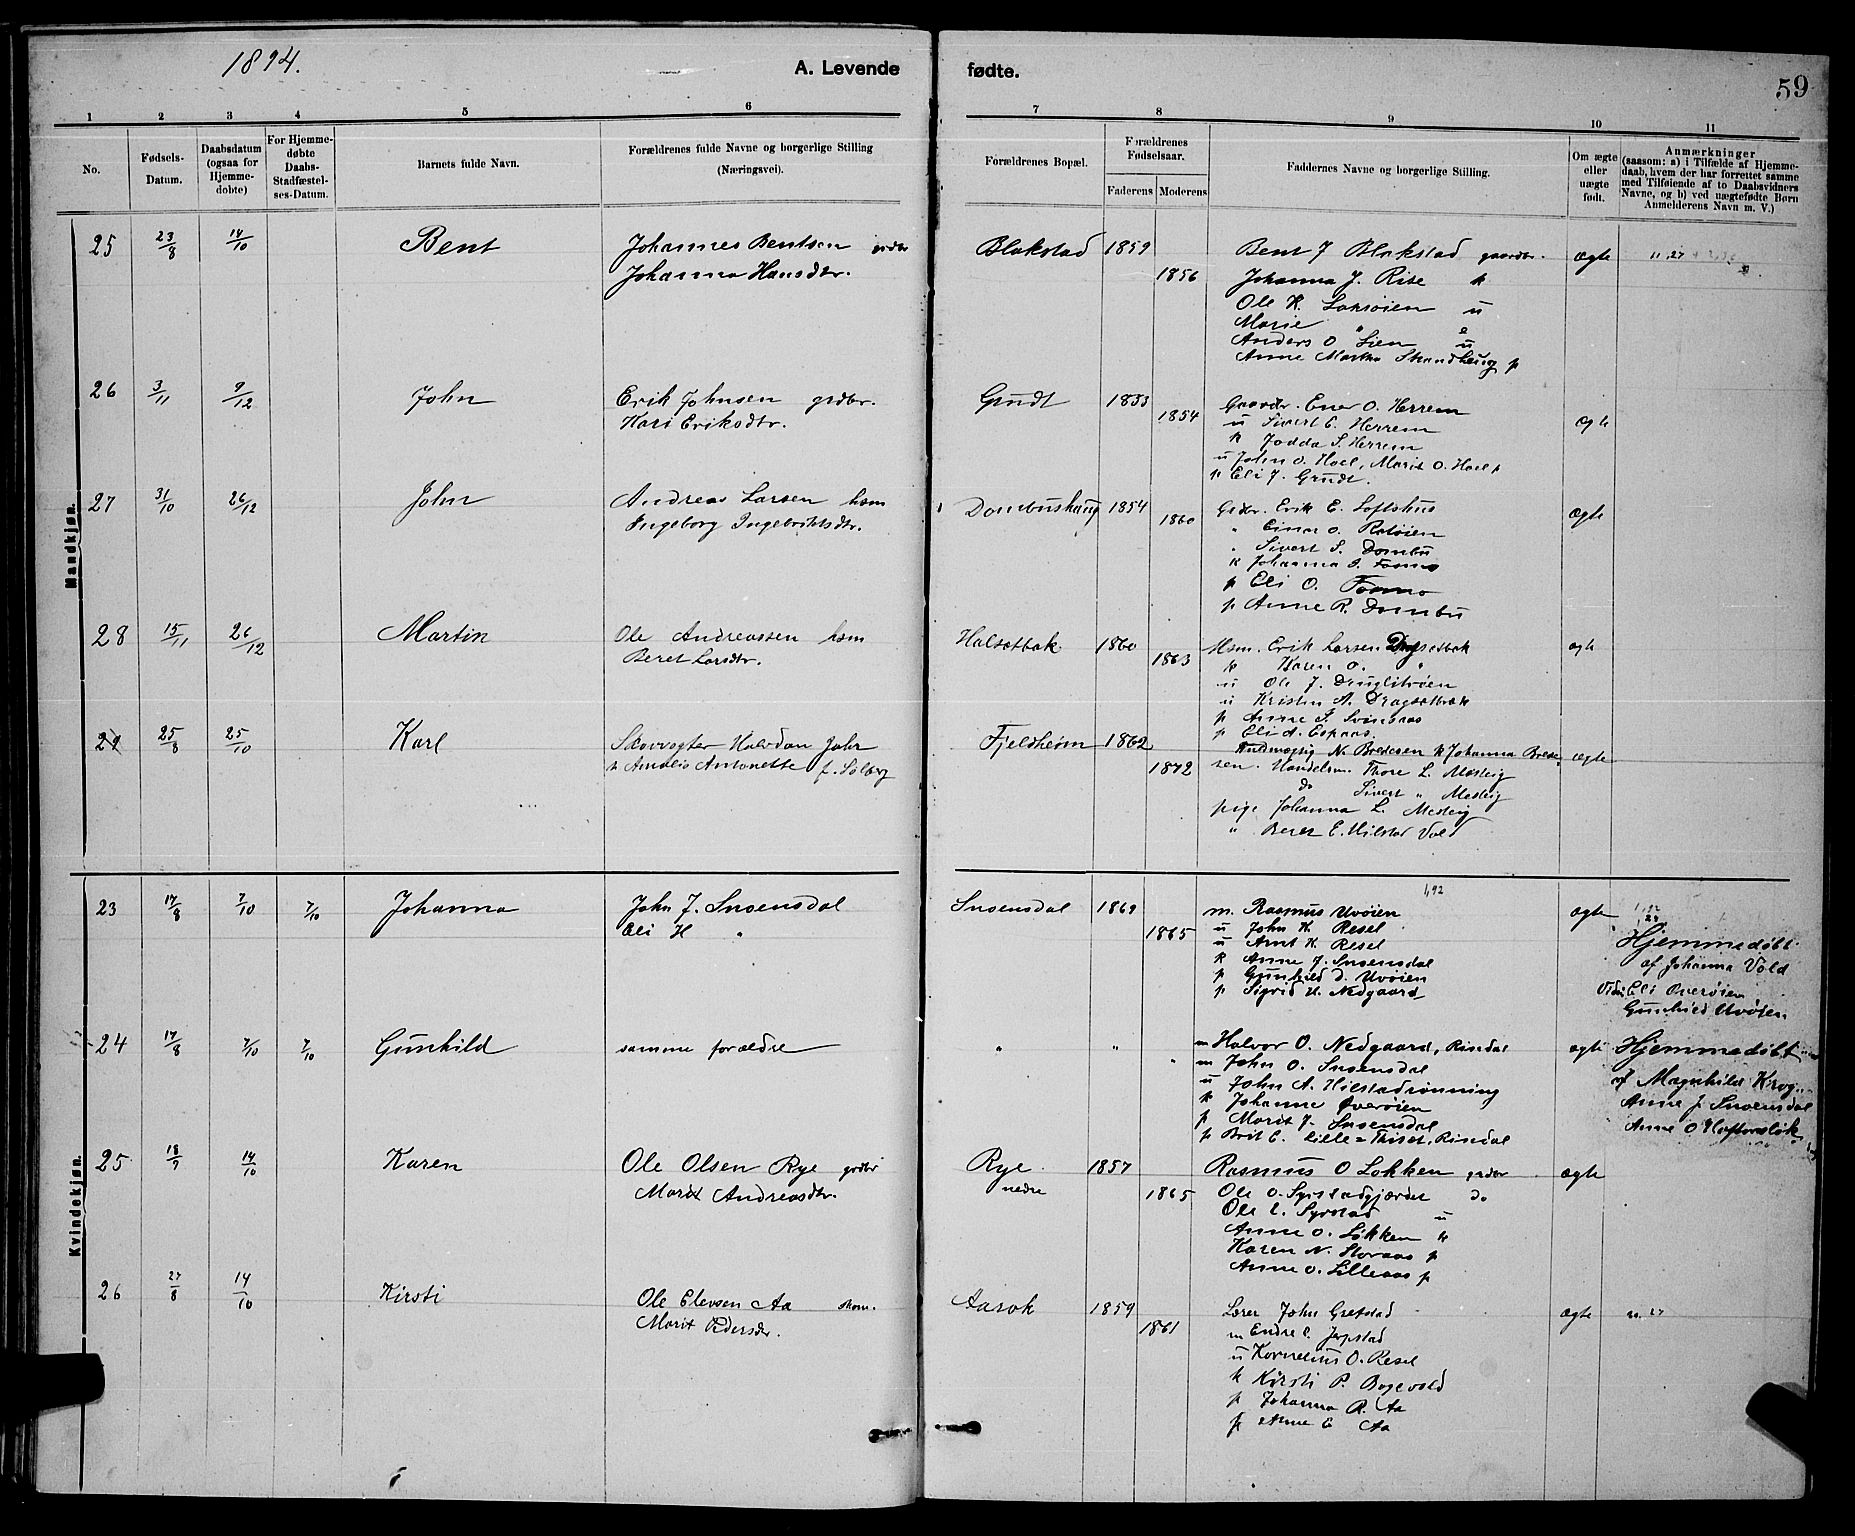 1894.
A. Levende
fødte.
59
1 2 3 4 5 6 7 8 9 10 11
No.
Fødsels-
Datum.
Daabsdatum
(ogsaa for
Hjemme-
døbte)
For Hjemme-
døbte
Daabs-
Stadfæstel-
ses-Datum.
Barnets fulde Navn.
Forældrenes fulde Navne og borgerlige Stilling
(Næringsvei).
Forældrenes Bopæl.
Forældrenes
Fødselsaar.
Faderens Moderens
Faddernes Navne og borgerlige Stilling.
Om ægte
eller
uægte
født.
Anmærkninger
(saasom: a) i Tilfælde af Hjemme-
daab, hvem der har forrettet samme
med Tilføiende af to Daabsvidners
Navne, og b) ved uægtefødte Børn
Anmelderens Navn m. V.)
Mandkjøn.
25 23/8 14/10 Bent
Johannes Bentsen grdbr
Johanna Hansdtr.
Blakstad 1859
1856
Bent J Blakstad gaardbr.
Johanna J. Rise k
Ole K. Laksøien u
Marie " e
Anders O Lien u
Anne Martha Strandhaug p
ægte
26 3/11 9/12 John
Erik Johnsen grdbr.
Kari Eriksdtr.
Grudt 1853
1854
Gaardbr. Ener O. Herrem
u Sivert E. Herrem
k Jodda S. Herrem
u John O. Hoel, Marit O. Hoel p
p Eli J. Grudt.
ægte
27 31/10 26/12 John
Andreas Larsen hsm
Ingeborg Ingebrigtsdtr.
Dombushaug 1854
1860
Grdbr. Erik E. Loftshus
" Einar O.
" Sivert S. Dombu
k Johanna O. Foomo
p Eli O. Foomo
p Anne R. Dombu
ægte
28 15/11 26/12 Martin
Ole Andreassen hsm
Beret Larsdtr.
Halsetbak 1860
1863
Hsm. Erik Larsen Dragsetbak
k Karen O. "
u Ole J.
u Kristen A. Dragsetbak
p Anne J. Svinsaas
p Eli d. Espaas.
ægte
29 25/8 25/10 Karl
Skovvogter Halvdan Johr
k Amalie Antonette f. Solberg
Fjeldheim 1862
1872
N. Bredesen k Johanna Brede-
sen. Handelsm. Thore L. Mesleig
do Sivert " Mesleig
pige Johanna L. Mesleig
" Beret E. Hilstad Vold
ægte
Kvindekjøn.
1,92
23 17/8 7/10 7/10 Johanna
John J. Snoensdal
Eli H "
Snoensdal 1869
1865
m. Rasmus Uvøien
u John H. Resel
u Arnt H Resel
k Anne J. Snoensdal
p Gunhild D. Uvøien
p Sigrid H. Nedgaard
ægte
Hjemmedøbt
af Johanna Vold
Vidn: Eli Øverøien
Gunhild Uvøien
24 17/8 7/10 7/10 Gunhild
samme forældre
" " "
m Halvor O. Nedgaard, Rindal
m John O. Snoensdal
u John A. Hilstadrønning
k Johanne Øverøien
p Marit J. Snoensdal
p Brit E. Lille-Thiset, Rindal
ægte
Hjemmedøbt
af Magnhild Krog
Anne J Snoensdal
Anne O
25 18/9 14/10 Karen
Ole Olsen Rye grdbr
Marit Andreasdtr.
Rye
nedre
1857
1865
Rasmus O Løkken grdbr
Ole O. Syrstadgjærdet do
Ole E. Syrstad u
Anne O. Løkken k
Karen N. Storaas p
Anne O. Lilleaas p
ægte
26 27/8 14/10 Kirsti
Ole Elevsen Aa
Marit Pedersdtr.
Aarok 1859
1861
Lærer John Grefstad
m Endre E. Jerpstad
u Kornelius O. Resel
k Kirsti P. Bogevold
p Johanna R. Aa
p Anne E Aa
ægte